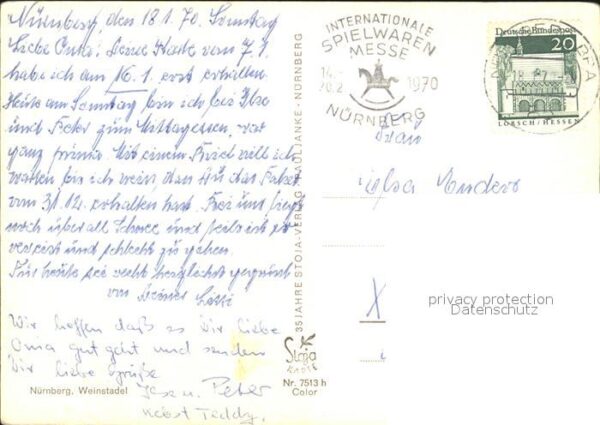 Nürnberg, den 18.1.70. Sonntag
Liebe Oma! Deine Karte vom 7.1.
habe ich am 16.1. erst erhalten.
Heute am Sonntag bin ich bei Ilse
und Peter zum Mittagessen, war
ganz prima. Mit einem Brief will ich
warten bis ich weiß, das Du das
vom 31.12. erhalten hast. Bei uns liegt
noch überall Schnee und teils ist es
vereist und schlecht zu gehen.
Für heute sei recht herzlichst gegrüßt
von Deiner Lotti
Wir hoffen daß es Dir liebe
Oma gut geht und senden
Dir liebe Grüße
Ilse u. Peter
nebst Teddy.
Nürnberg, Weinstadel
35 JAHRE STOJA-VERLAG PAUL JANKE · NÜRNBERG
Stoja
Nr. 7513 h
Color
INTERNATIONALE
SPIELWAREN
MESSE
14.-
20.2.
1970
NÜRNBERG
Deutsche Bundespost
20
LORSCH/HESSEN
Frau
Elsa
X
privacy protection
Datenschutz